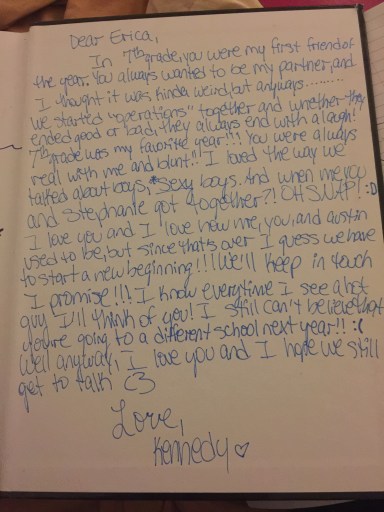 Dear Erica,
In 7th grade, you were my first friend of
the year. You always wanted to be my partner, and
I thought it was kinda weird, but anyways.........
we started "operations" together and whether they
ended good or bad, they always end with a laugh!
7th grade was my favorite year!!! You were always
real with me and blunt.!! I loved the way we
talked about boys, *Sexy boys. And when me, cy
and Stephanie got together?! OH SNAP! :D
I love you and I love how me, you, and austin
used to be, but since that's over I guess we have
to start a new beginning!!! We'll keep in touch
I promise!!! I know everytime I see a hot
guy I'll think of you! I still can't believe that
you're going to a different school next year!! :(
Well anyway, I love you and I hope we still
get to talk <3
Love,
Kennedy ♡